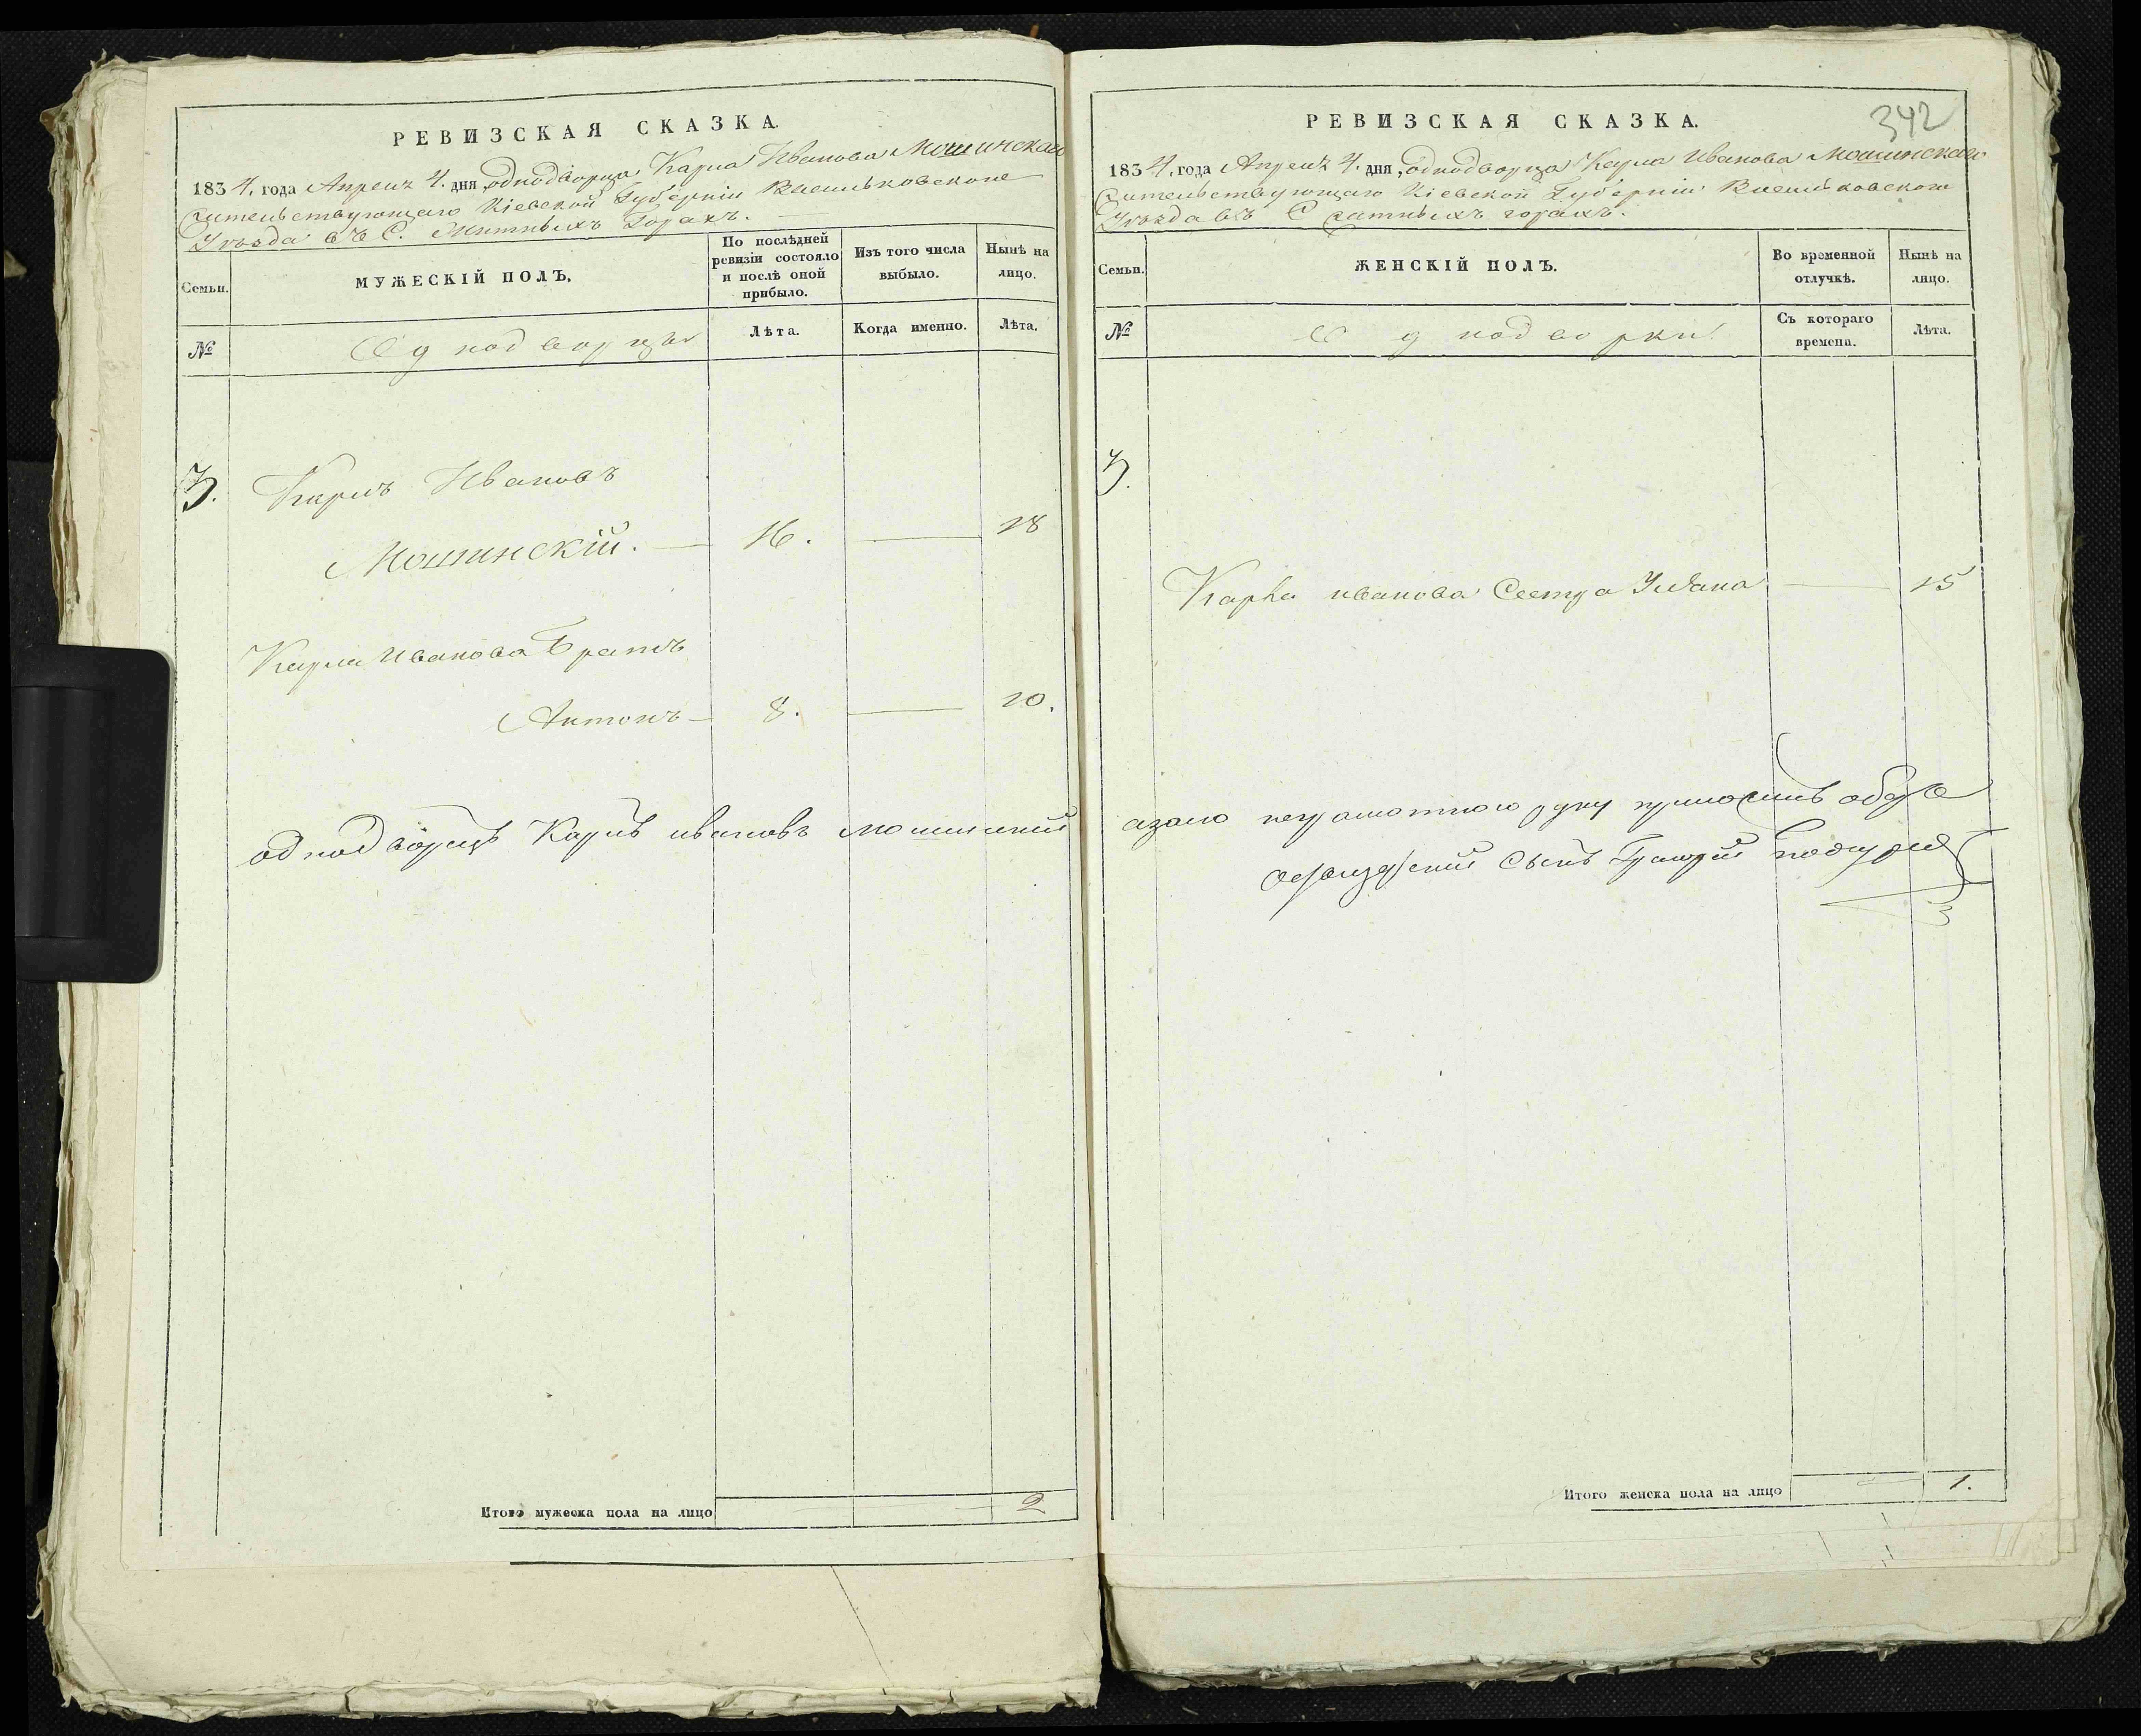 РЕВИЗСКАЯ СКАЗКА.
1834. года Апреля 4. дня однодворца Карла Иванова Мошинскаго
Жительствующаго Кіевской Губерніи Васильковскаго
Уѣзда въ С. Житныхъ Горахъ.
Семьи.
МУЖЕСКІЙ ПОЛЪ.
По послѣдней ревизіи состояло и послѣ оной прибыло.
Изъ того числа выбыло.
Нынѣ на лицо.
№
Однодворцы
Лѣта.
Когда именно.
Лѣта.
3. Карлъ Ивановъ
Мошинскій. — 16. — 18
Карла Иванова Братъ
Антонъ — 8. — 10.
однодворецъ Карлъ ивановъ мошинский
Итого мужеска пола на лицо 2
342
РЕВИЗСКАЯ СКАЗКА.
1834. года Апреля 4. дня, однодворца Карла Иванова Мошинскаго
Жительствующаго Кіевской Губерніи Васильковского
Уѣзда въ С Житныхъ горахъ.
Семьи.
ЖЕНСКІЙ ПОЛЪ.
Во временной отлучкѣ.
Нынѣ на лицо.
№
Однодворки
Съ котораго времени.
Лѣта.
3.
Карла иванова Сестра Улѣяна — 15
азаего неграмотного руку
сынъ Григорий
Итого женска пола на лицо 1.